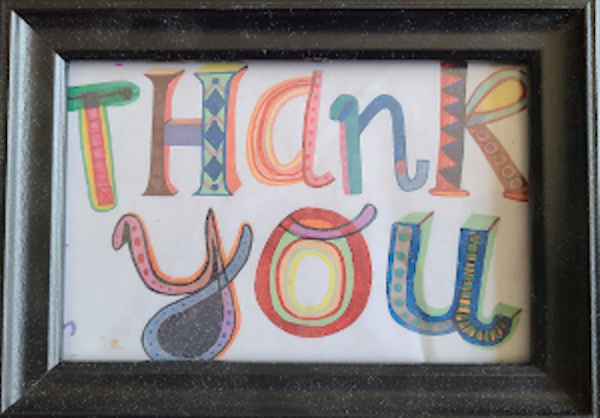 THanK
you